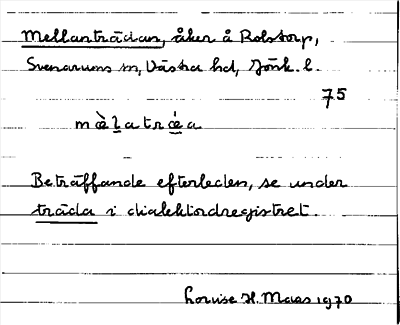 Mellanträdan, åker å Rolstorp,
Svenarums sn, Västra hd, Jönk. l.
75
mæ̀l̠atrǿ̠a
Beträffande efterleden, se under
träda i dialektordregistret.
Lovise H. Maas 1970